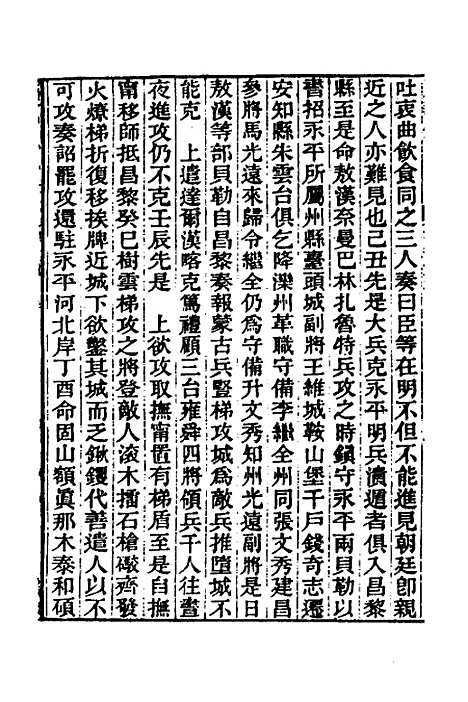 吐衷曲飲食同之三人奏曰臣等在明不但不能進見朝廷卽親
近之人亦難見也己丑先是大兵克永平明兵潰遁者俱入昌黎
縣至是命敖漢奈曼巴林扎魯特兵攻之時鎮守永平兩貝勒以
書招永平所屬州縣臺頭城副將王維城鞍山堡千戶錢奇志遷
安知縣朱雲台俱乞降灤州革職守備李繼全州同張文秀建昌
參將馬光遠來歸令繼全仍爲守備升文秀知州光遠副將是日
敖漢等部貝勒自昌黎奏報蒙古兵豎梯攻城爲敵兵推墮城不
能克　上遣達爾漢喀克篤禮顧三台雍舜四將領兵千人往晝
夜進攻仍不克壬辰先是　上欲攻取撫甯置有梯盾至是自撫
甯移師抵昌黎癸巳樹雲梯攻之將登敵人滾木擂石槍礮齊發
火燎梯折復移挨牌近城下欲鑿其城而乏鍬钁代善遣人以不
可攻奏詔罷攻還駐永平河北岸丁酉命固山額眞那木泰和碩